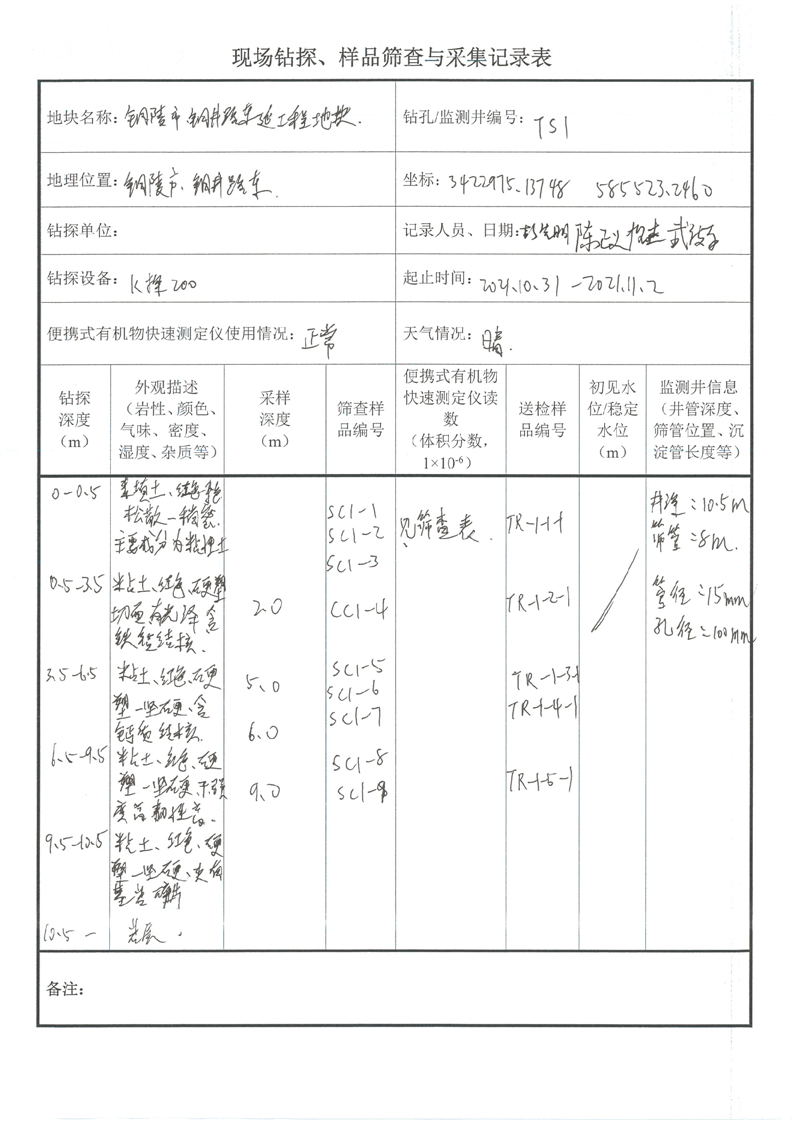 现场钻探、样品筛查与采集记录表
地块名称：铜陵市铜井路东延工程地块.
钻孔/监测井编号：TS1
地理位置：铜陵市、铜井路东.
坐标：3422975.13748 585523.2460
钻探单位：
记录人员、日期：
钻探设备：K探200
起止时间：2021.10.31-2021.11.2
便携式有机物快速测定仪使用情况：正常
天气情况：晴.
钻探
深度
（m）
外观描述
（岩性、颜色、
气味、密度、
湿度、杂质等）
采样
深度
（m）
筛查样
品编号
便携式有机物
快速测定仪读
数
（体积分数，
1×10⁻⁶）
送检样
品编号
初见水
位/稳定
水位
（m）
监测井信息
（井管深度、
筛管位置、沉
淀管长度等）
0-0.5
素填土、红色
松散一稍密.
主要成分为粘性土
SC1-1
SC1-2
SC1-3
见筛查表.
TR-1-1-1
井深：10.5m
筛管：8m.
0.5-3.5
粘土、红色、硬塑
切面有光泽含
铁锰结核.
2.0
CC1-4
TR-1-2-1
管径：15mm
孔径：100mm
3.5-6.5
粘土、红色、硬
塑一坚硬、含
钙质结核.
5.0
6.0
SC1-5
SC1-6
SC1-7
TR-1-3-1
TR-1-4-1
6.5-9.5
粘土、红色、硬
塑一坚硬、干强
度高韧性高.
9.0
SC1-8
SC1-9
TR-1-5-1
9.5-10.5
粘土、红色、硬
塑一坚硬、夹有
基岩碎片
10.5-
岩层.
备注：